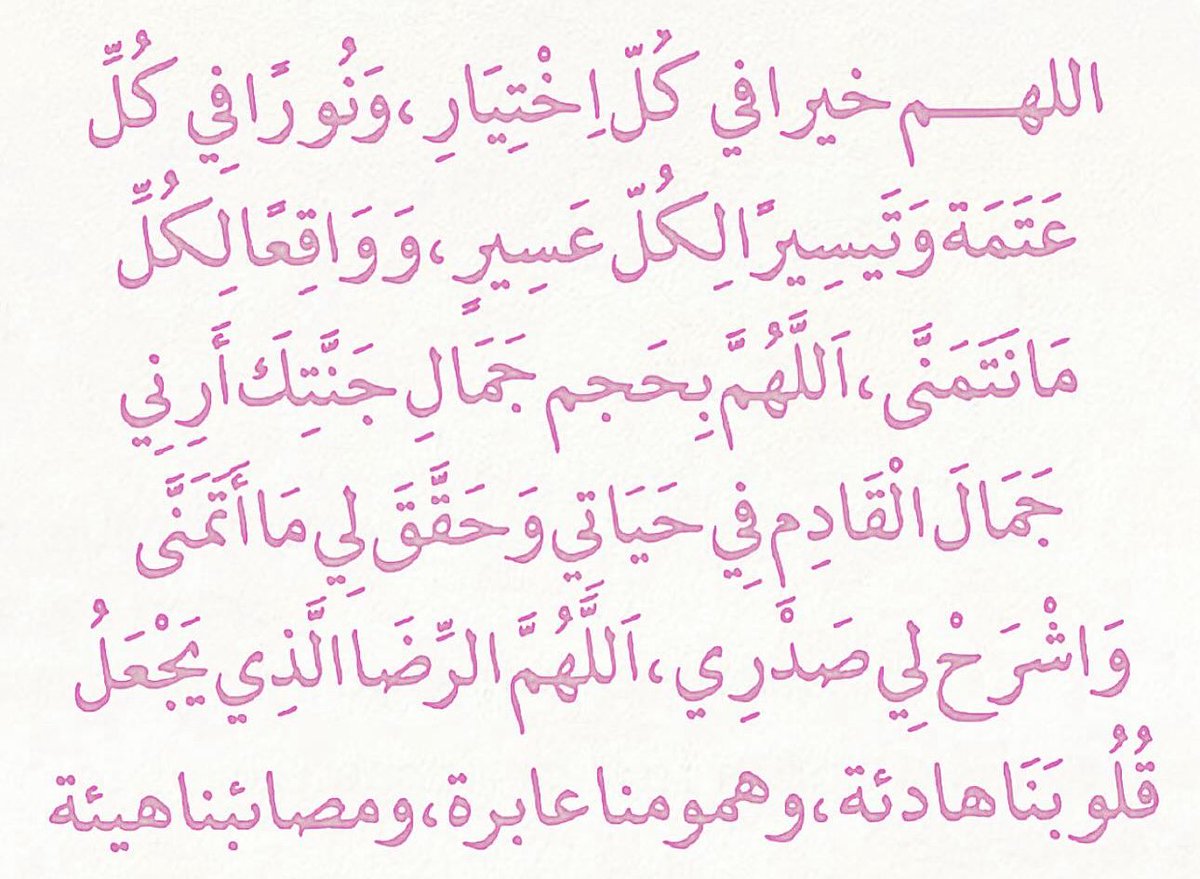 اللهـــــم خيرا في كُلّ اِخْتِيَارِ ، وَنُورًا فِي كُلِّ
عَتَمَة وَتَيسِيرًا لِكُلّ عَسِيرٍ ، وَ وَاقِعًا لِكُلِّ
مَا نَتَمَنَّى ، اَللَّهُمَّ بِحَجم جَمَالِ جَنَّتِكَ أَرِنِي
جَمَالَ الْقَادِمِ فِي حَيَاتِي وَ حَقَّقَ لِي مَا أَتَمَنَّى
وَاشْرَحْ لِي صَدْرِي ، اَللَّهُمَّ الرِّضَا الَّذِي يَجْعَلُ
قُلُوبَنَا هادئة ، وهمومنا عابرة ، ومصائبنا هيئة